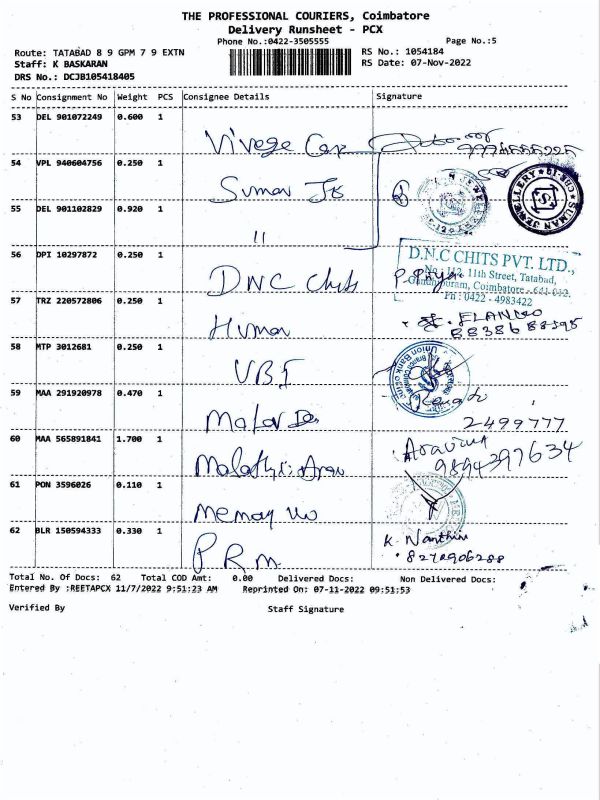 THE PROFESSIONAL COURIERS, Coimbatore
Delivery Runsheet - PCX
Phone No.:0422-3505555 Page No.:5
Route: TATABAD 8 9 GPM 7 9 EXTN RS No.: 1054184
Staff: K BASKARAN RS Date: 07-Nov-2022
DRS No.: DCJB105418405
S No Consignment No Weight PCS Consignee Details Signature
53 DEL 901072249 0.600 1
54 VPL 940604756 0.250 1 Suman
SUMAN JEWELLERY
55 DEL 901102829 0.920 1 "
56 DPI 10297872 0.250 1 DNC Chits
D.N.C CHITS PVT. LTD.,
No : 112, 11th Street, Tatabad,
Coimbatore - 641 012.
Ph : 0422 - 4983422
57 TRZ 220572806 0.250 1 Human
58 MTP 3012681 0.250 1 UBI
Union Bank of
59 MAA 291920978 0.470 1
2499777
60 MAA 565891841 1.700 1 Aravind
9894397634
61 PON 3596026 0.110 1
62 BLR 150594333 0.330 1 PRM K. Nanthini
Total No. Of Docs: 62 Total COD Amt: 0.00 Delivered Docs: Non Delivered Docs:
Entered By :REETAPCX 11/7/2022 9:51:23 AM Reprinted On: 07-11-2022 09:51:53
Verified By Staff Signature